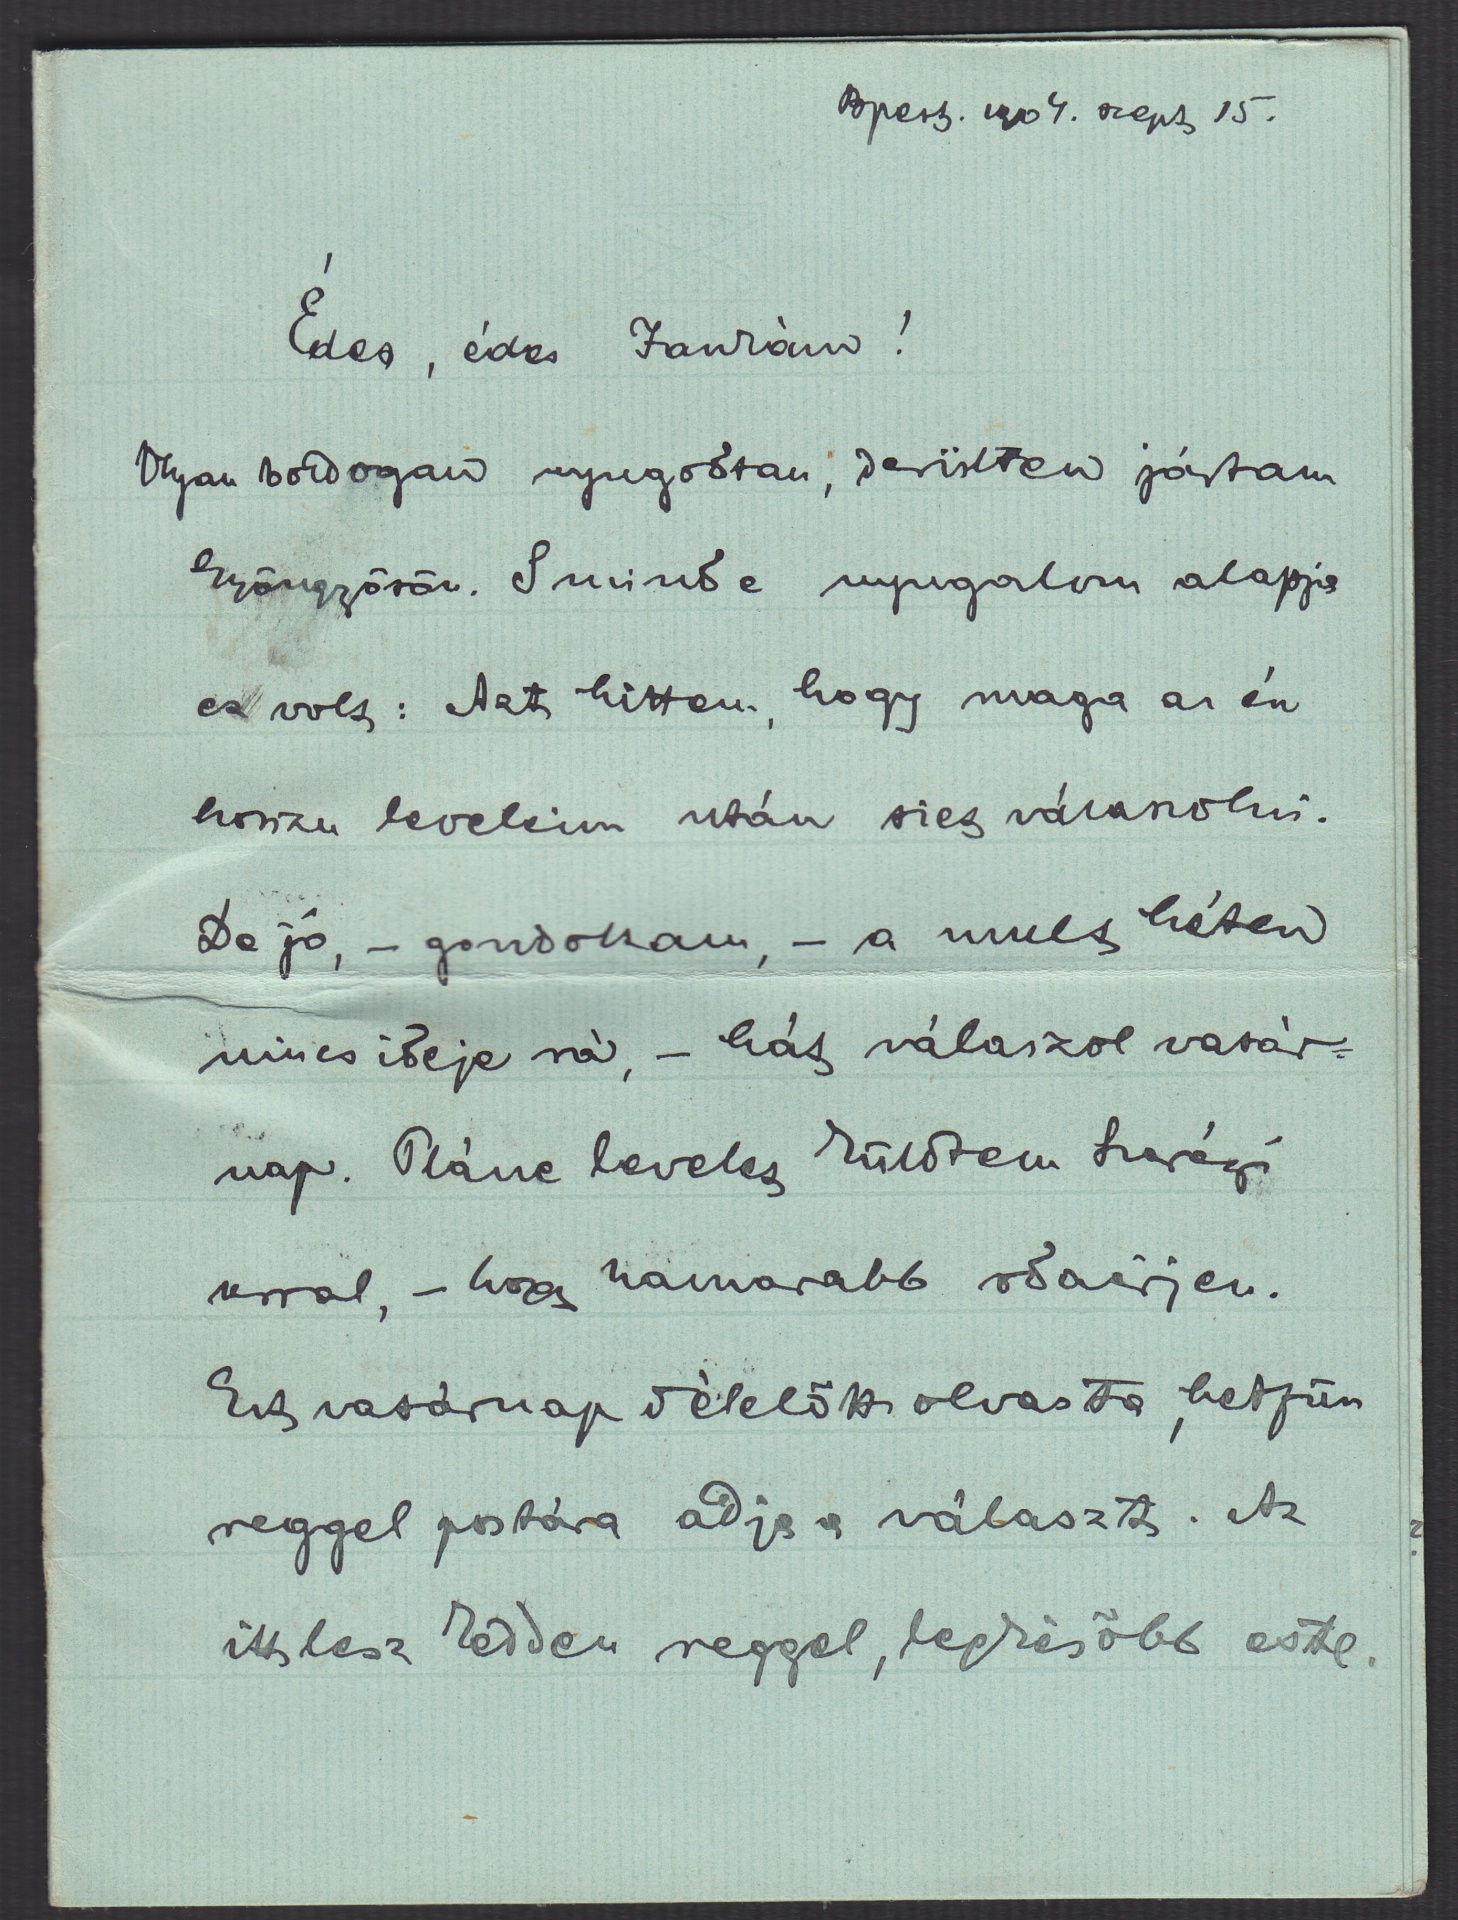 Bpest. 1904. szept 15.
Édes, édes Jankám!
Olyan boldogan nyugodtan, derülten jártam
Gyöngyösön. S mind e nyugalom alapja
ez volt: Azt hittem, hogy maga az én
hosszu leveleim után siet válaszolni.
De jó, – gondoltam, – a mult héten
nincs ideje rá, – hát válaszol vasár=
nap. Pláne levelet küldtem
urral, – hogy hamarabb odaérjen.
Ezt vasárnap délelőtt olvasta, hetfün
reggel postára adja a választ. Az
itt lesz kedden reggel, legkésőbb este.